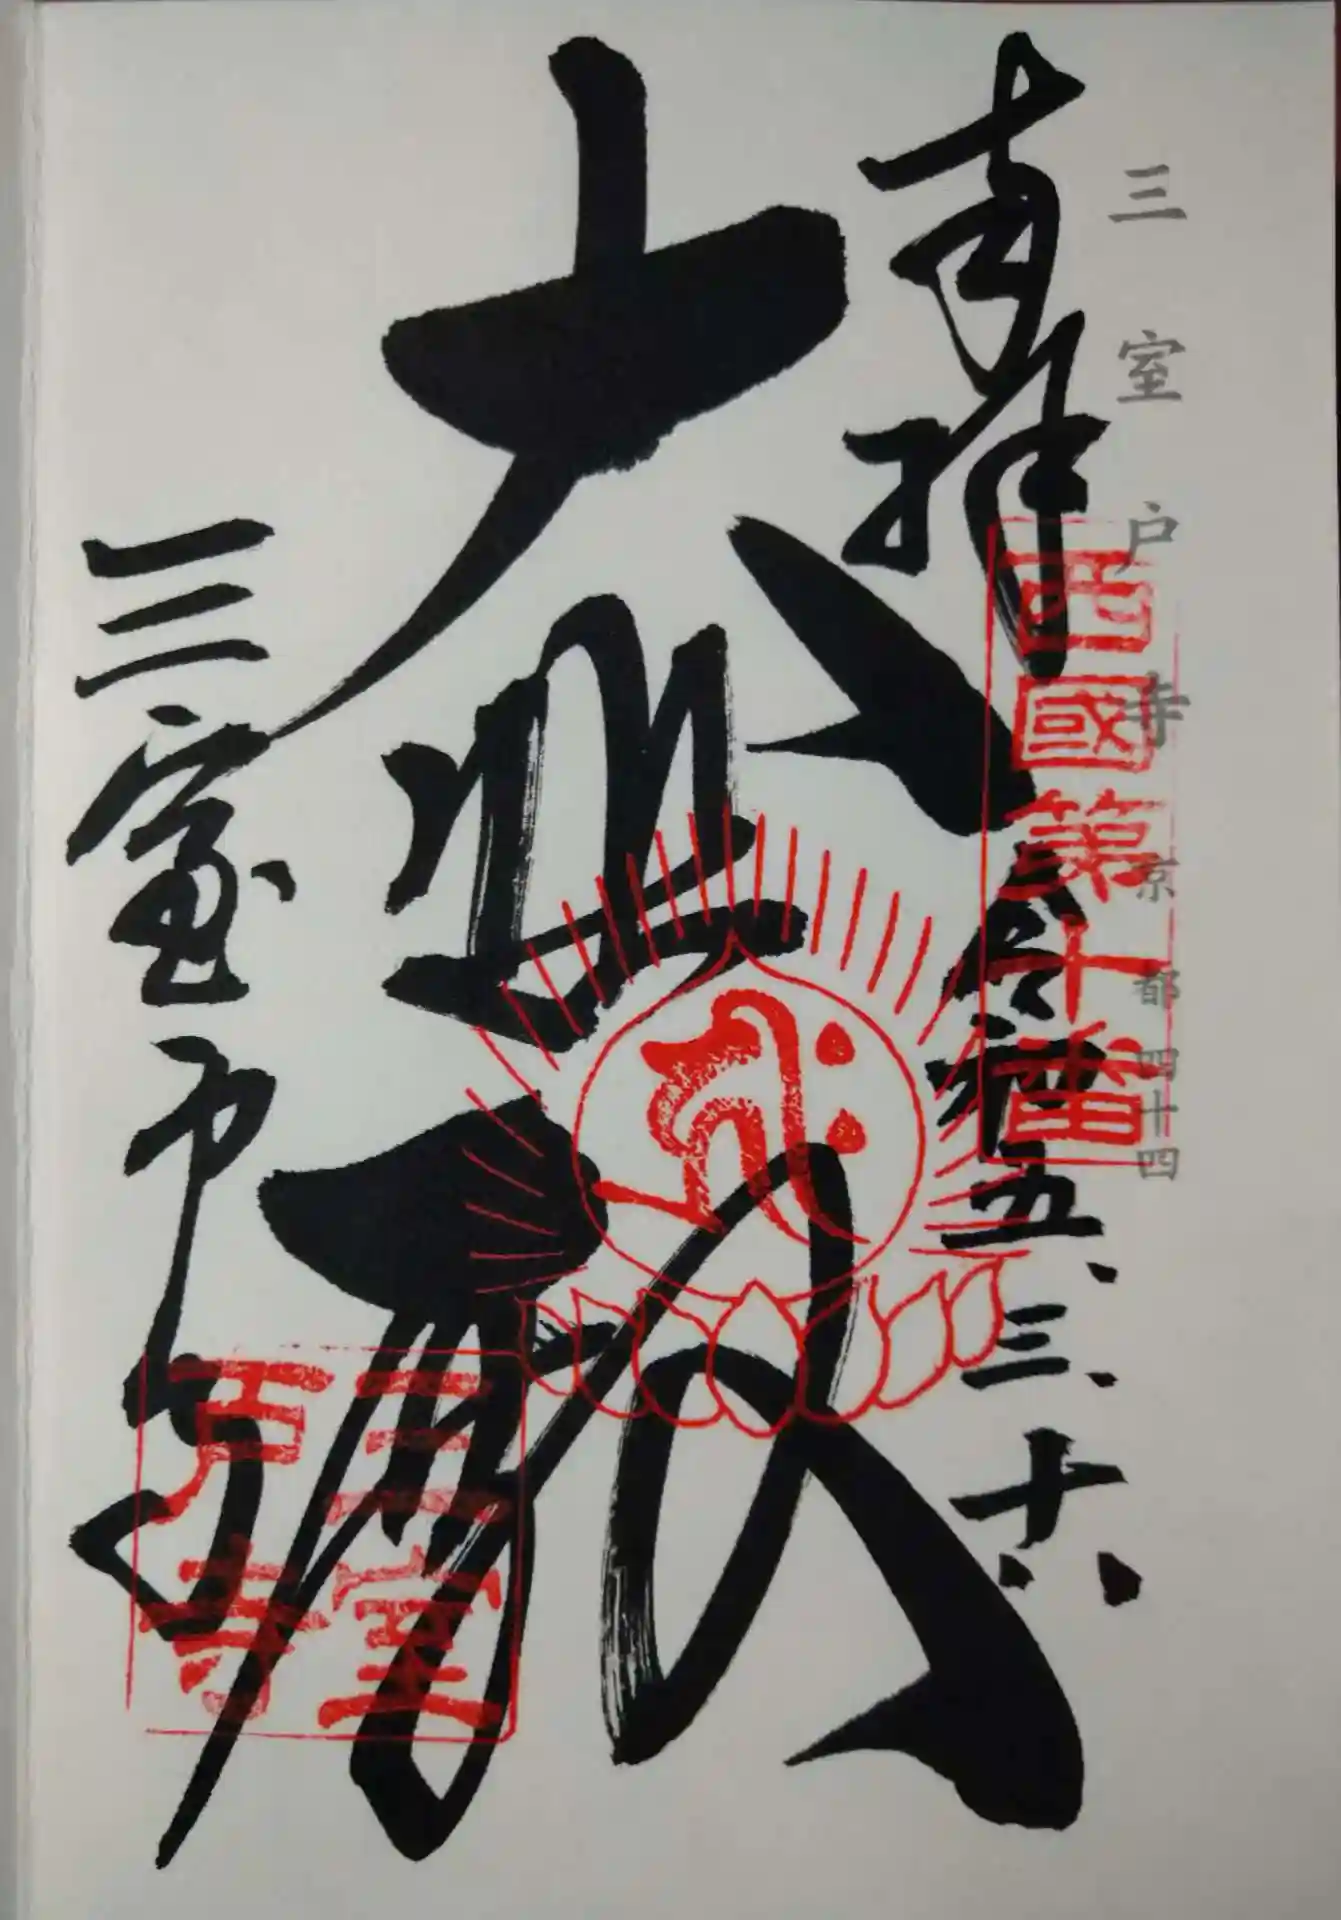 三室戸寺 京都四十四
奉拝
令和五、三、十六
西國第十番
大悲殿
三室戸寺
三室
戸寺